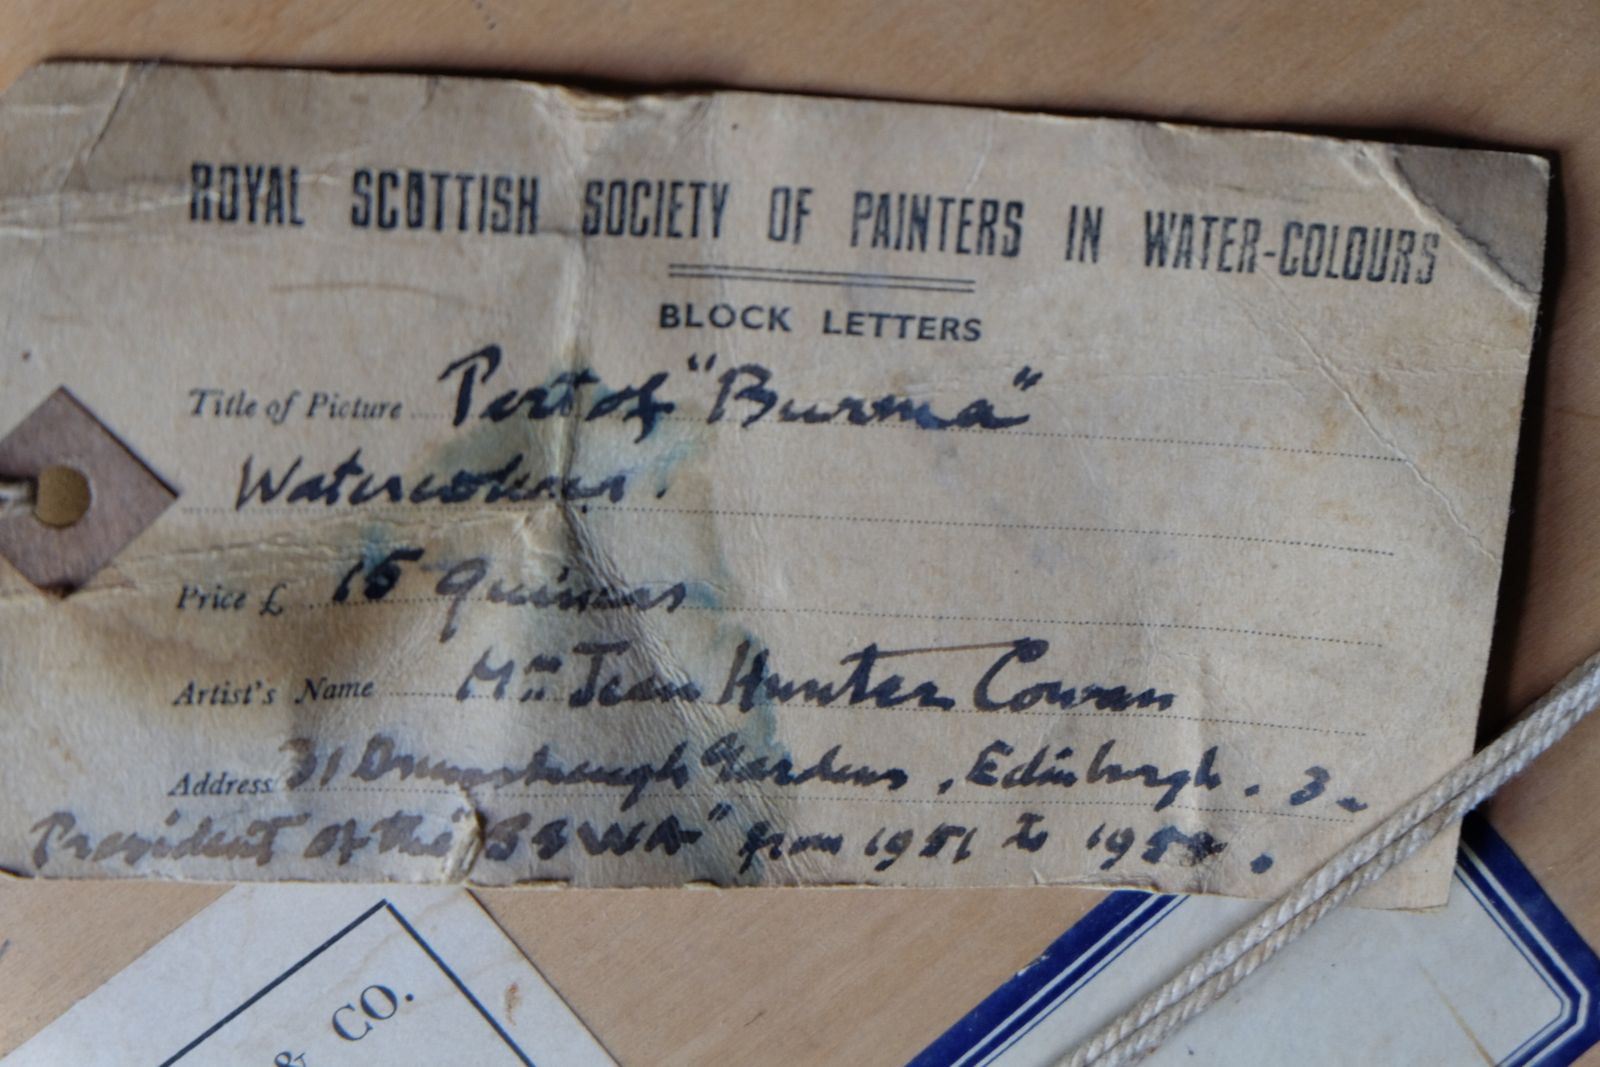 ROYAL SCOTTISH SOCIETY OF PAINTERS IN WATER-COLOURS
BLOCK LETTERS
Title of Picture Port of "Burma"
Watercolour.
Price £ 15 guineas
Artist's Name Mrs Jean Hunter Cowan
Address 31 Drumsheugh Gardens, Edinburgh. 3-
President of the "SSWA" from 1951 to
& CO.